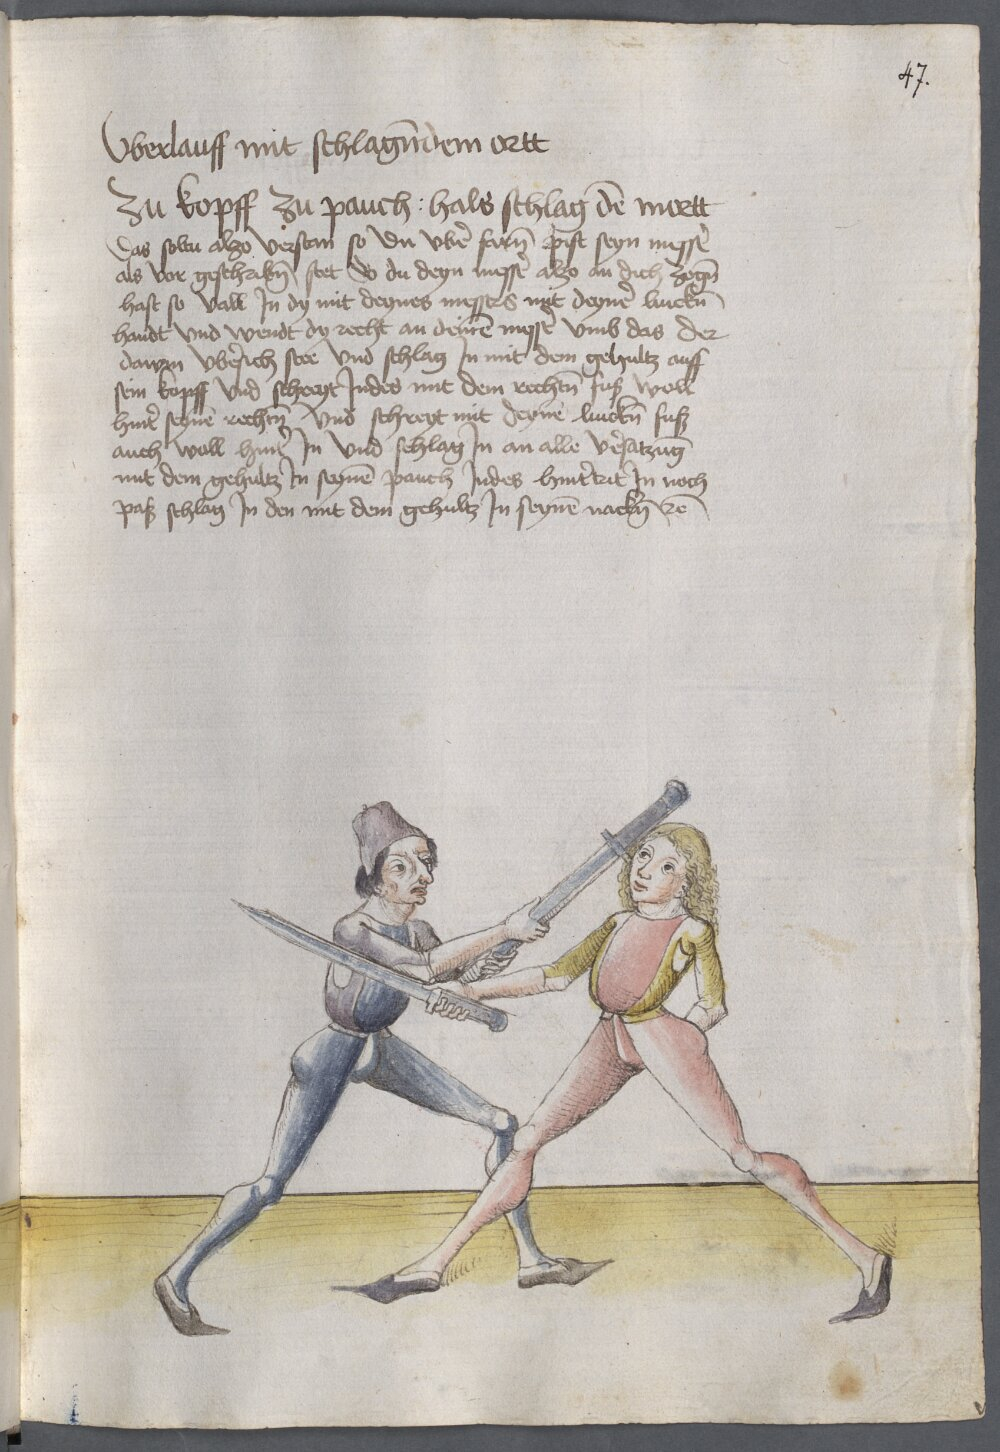 47.
Vberlauff mit schlagn̄dem ortt
Zu kopff Zu pauch : hals schlag dē mortt
Das soltu alzo verstan so du vbē farn̄ pist seyn messē
als vor geschribn̄ stet So du deyn messē alzo an dich zogn̄
hast so vall In dy mit deynes messers mit deynē linckn̄
handt vnd wendt dy recht an deinē messē vmb das der
dawm vbersich stee vnd schlag In mit dem gehultz auff
sein kopff vnd schreyt Indes mit dem rechtn̄ fuß woll
hintē seynē rechtn̄ vnd schreyt mit deynē linckn̄ fuß
auch woll hintē In vnd schlag In an alle versatzūg
mit dem gehultz In seynē pauch Indes hintertrit In noch
paß schlag In den mit dem gehultz In seynē nackn̄ Rē